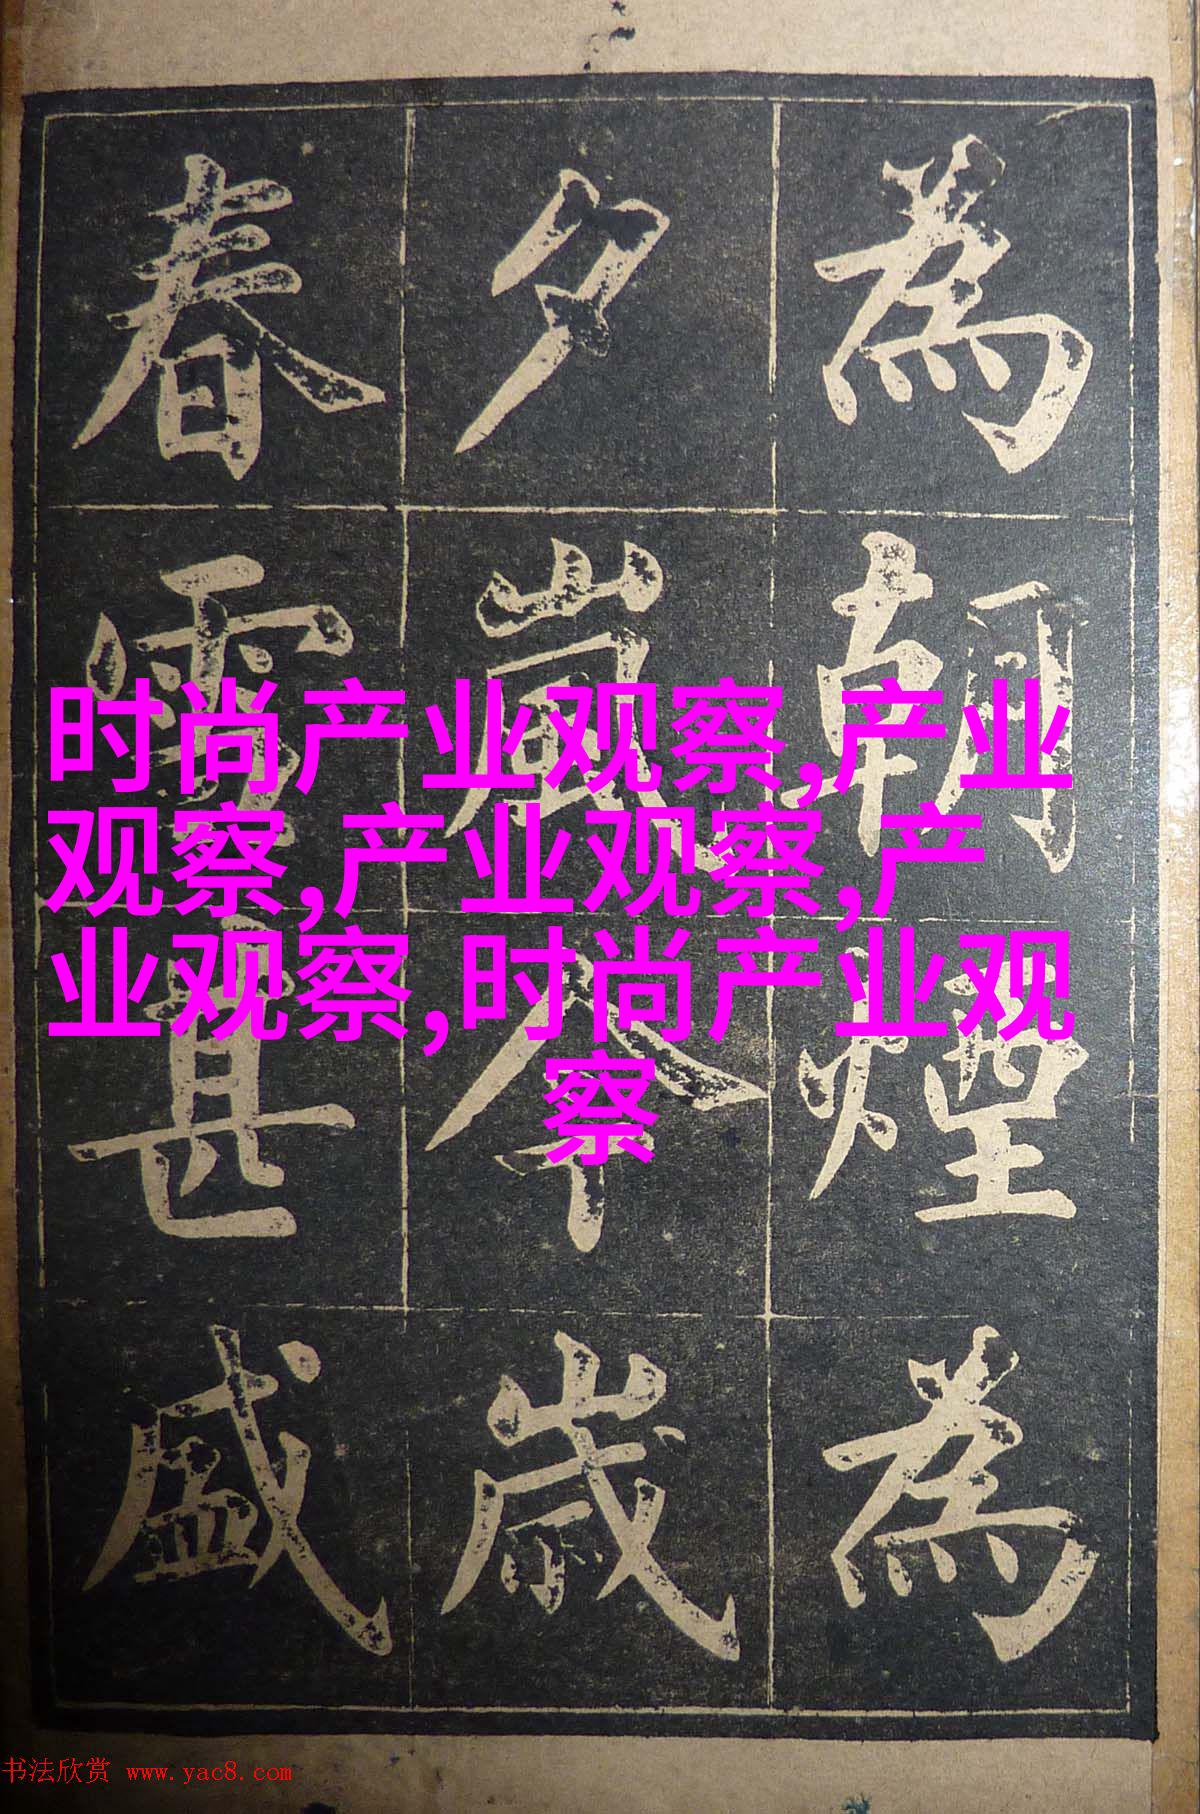 為朝煙為
夕嵐今歲
春雪甚盛
时尚产业观察,产业
观察,产业观察,产
业观察,时尚产业观
察
书法欣赏 www.yac8.com